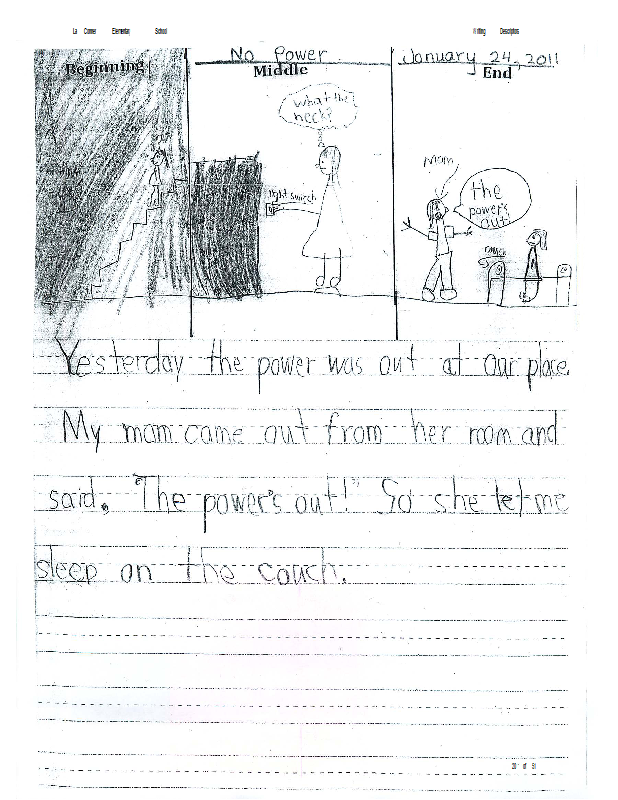 La Conner Elementary School
Writing Descriptors
No Power
January 24, 2011
Beginning
Middle
End
What the heck?
light switch
Mom
the power's out
couch
Yesterday the power was out at our place.
My mom came out from her room and
said, "The power's out!" So she let me
sleep on the couch.
of 91